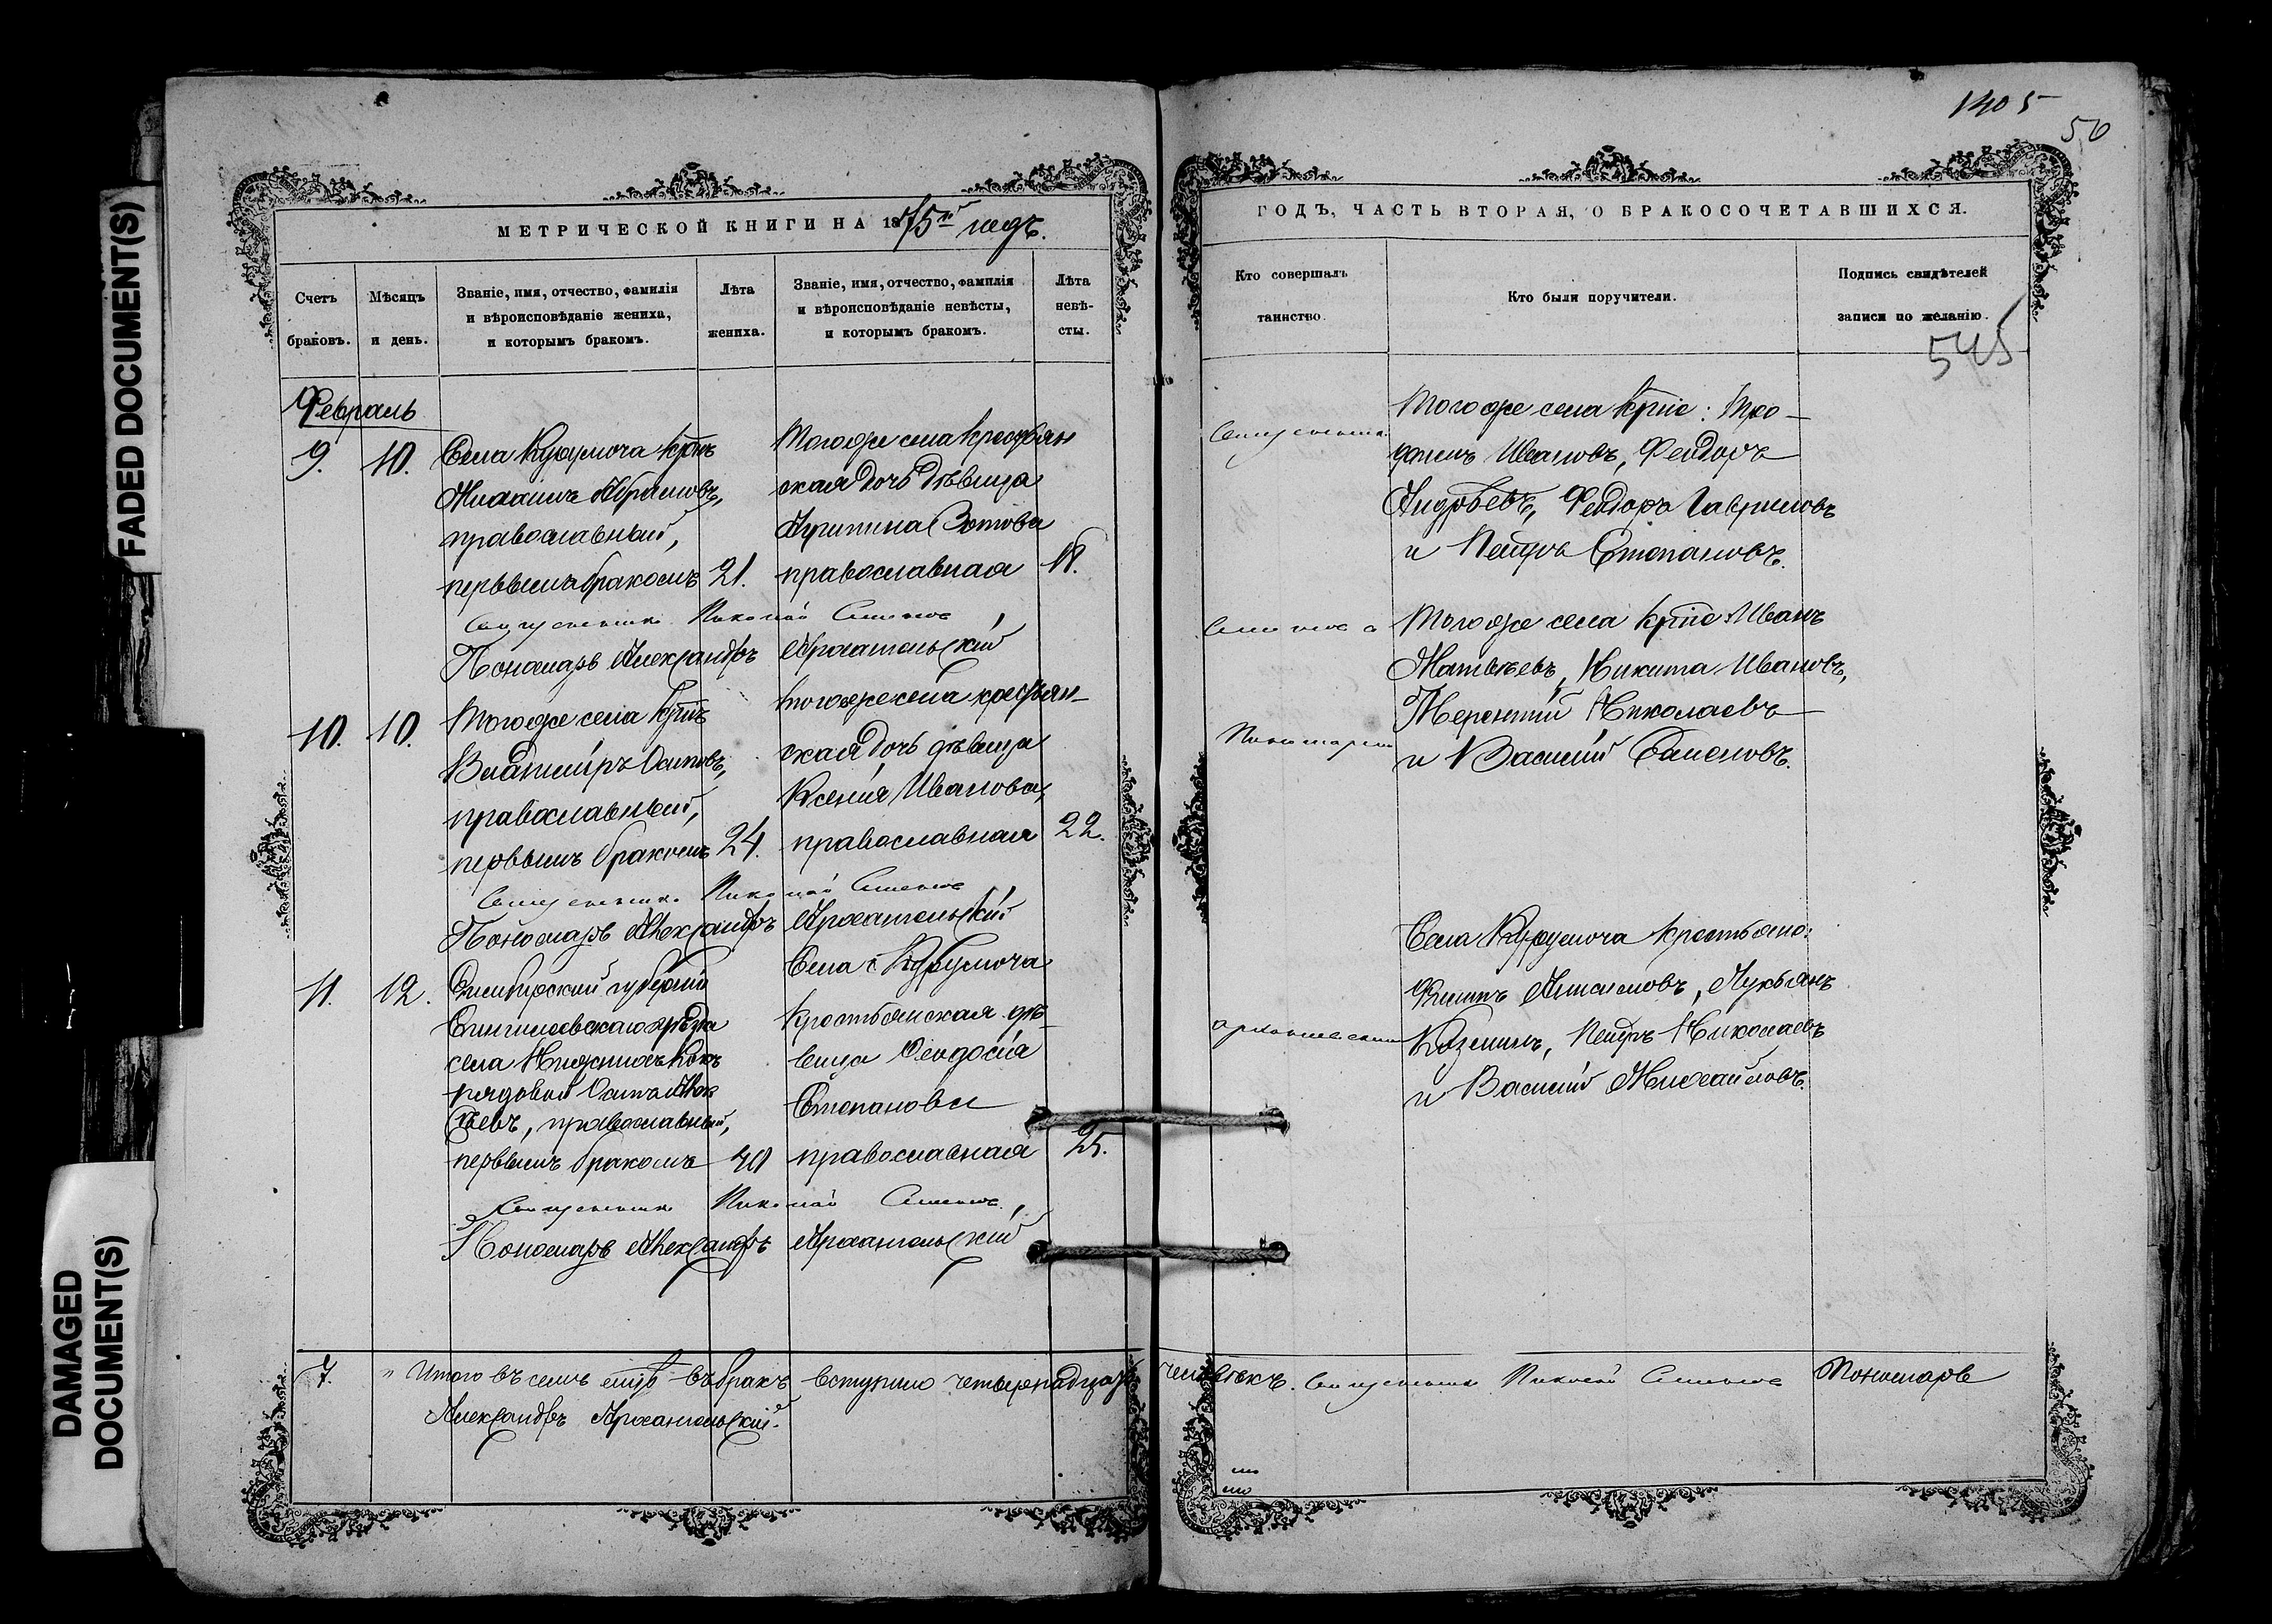 FADED DOCUMENT(S)
DAMAGED
DOCUMENT(S)
МЕТРИЧЕСКОЙ КНИГИ НА 1875й годъ.
Счетъ
браковъ.
Мѣсяцъ
и день.
Званіе, имя, отчество, фамилія
и вѣроисповѣданіе жениха,
и которымъ бракомъ.
Лѣта
жениха.
Званіе, имя, отчество, фамилія
и вѣроисповѣданіе невѣсты,
и которымъ бракомъ.
Лѣта
невѣ-
сты.
Февраль
9.
10.
Села Курумоча кртнъ
Михаилъ Абрамовъ,
православный,
первымъ бракомъ
21.
Тогоже села крестьян
ская дочь дѣвица
Агрипина Зотова
православная
18.
Священникъ Николай
Пономарь Александръ Архангельскій
10.
10.
Тогоже села кртнъ
Владиміръ Осиповъ,
православный,
первымъ бракомъ
24.
тогоже села крестьян-
ская дочь дѣвица
Ксенія Иванова,
православная
22.
Священникъ Николай
Пономарь Александръ Архангельскій
11.
12.
Симбирской губерніи
Сингилеевскаго уѣзда
села Нижнихъ
рядовой Осипъ
первымъ бракомъ
40
Села Курумоча
крестьянская дѣ-
вица Феодосія
Степанова
православная
25.
Священникъ Николай
Пономарь Александръ Архангельскій
7.
" Итого въ семъ въ бракъ вступило четырнадцать человѣкъ. Священникъ Николай Пономарь
Александръ Архангельскій.
1405
50
ГОДЪ, ЧАСТЬ ВТОРАЯ, О БРАКОСОЧЕТАВШИХСЯ.
Кто совершалъ
таинство.
Кто были поручители.
Подпись свидѣтелей
записи по желанію.
545
Священникъ
Пономарь
Архангельскій
Тогоже села крте: Тро-
фимъ Ивановъ, Феодоръ
Андрѣевъ, Феодоръ Гавриловъ
и Петръ Степановъ.
Тогоже села крте Иванъ
Матвѣевъ, Никита Ивановъ,
Терентій Николаевъ
и Василій Семеновъ.
Села Курумоча крестьяне:
Филипъ Анисимовъ, Лукьянъ
Козминъ, Петръ Николаевъ
и Василій Михайловъ.